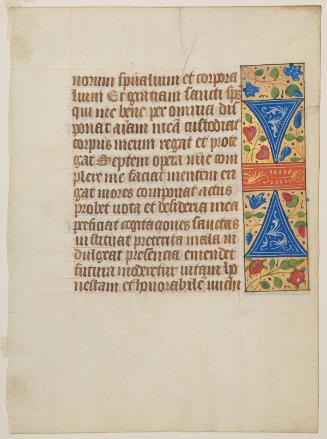 norum spūalium et corpora
lium Et gratiam sancti sps
qui me bene per omnia dis
ponat aīam meā custodiat
corpus meum regat et prote
gat Septem opera mīe com
plere me faciat mentem eri
gat mores componat actus
probet uota et desideria mea
perficiat cogitationes sanctas
instituat preterita mala in
dulgeat presencia emendet
futura moderetur uitam ho
nestam et honorabilē michi